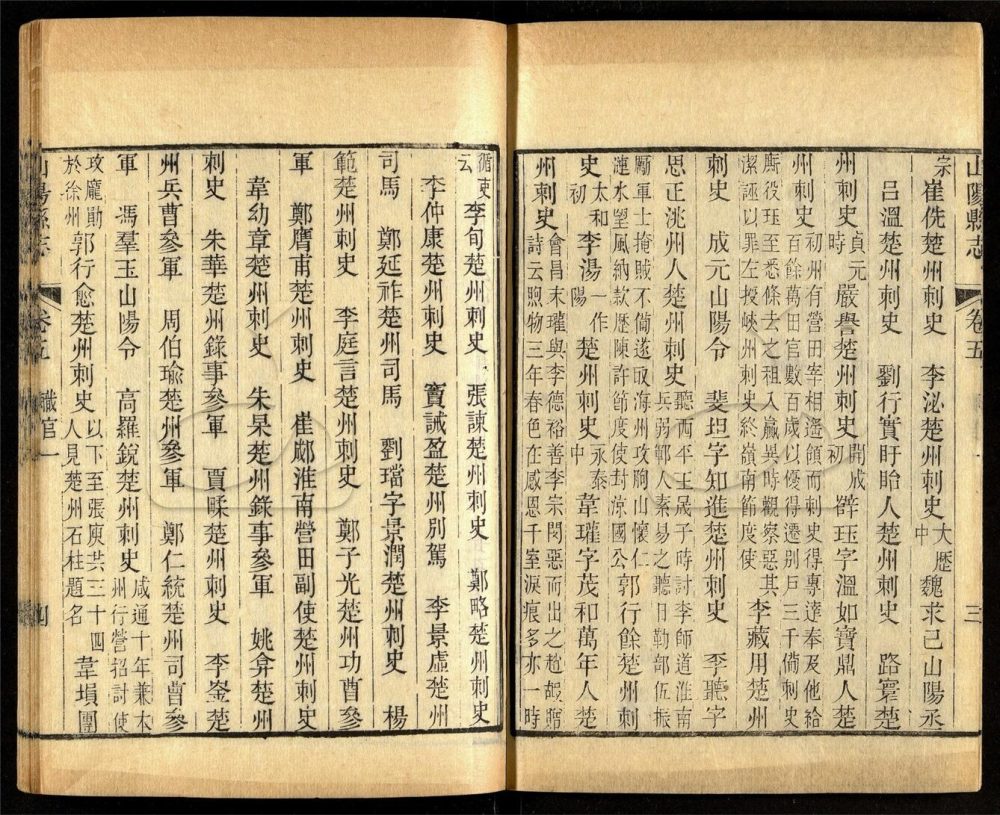 山陽縣志 卷五 三
宗 崔侁楚州刺史 李泌楚州刺史 大歷中 魏求己山陽丞
呂溫楚州刺史 劉行實盱眙人楚州刺史 路寰楚
州刺史 貞元時 嚴譽楚州刺史 開成初 薛珏字溫如寶鼎人楚
州刺史 初州有營田宰相遙領而刺史得專達奉及他給
百餘萬田官數百歲以優得遷別戶三千備刺史
廝役珏至悉條去之租入贏異時觀察惡其
潔誣以罪左授峽州刺史終嶺南節度使 李藏用楚州
刺史 成元山陽令 裴坦字知進楚州刺史 李聽字
思正洮州人楚州刺史 聽西平王晟子時討李師道淮南
兵弱鄆人素易之聽日勒部伍振
勵軍士掩賊不備遂取海州攻朐山懷仁
漣水望風納款歷陳許節度使封涼國公 郭行餘楚州刺
史 太和初 李湯 一作陽 楚州刺史 永泰中 韋瓘字茂和萬年人楚
州刺史 會昌末瓘與李德裕善李宗閔惡而出之趙嘏贈
詩云煦物三年春色在感恩千室淚痕多亦一時
循吏云 李旬楚州刺史 張諫楚州刺史 鄭略楚州刺史
李仲康楚州刺史 竇誡盈楚州別駕 李景虛楚州
司馬 鄭延祚楚州司馬 劉璫字景潤楚州刺史 楊
範楚州刺史 李庭言楚州刺史 鄭子光楚州功曹參
軍 鄭膺甫楚州刺史 崔郕淮南營田副使楚州刺史
韋幼章楚州刺史 朱杲楚州錄事參軍 姚弇楚州
刺史 朱華楚州錄事參軍 賈餗楚州刺史 李崟楚
州兵曹參軍 周伯瑜楚州參軍 鄭仁統楚州司曹參
軍 馮羣玉山陽令 高羅銳楚州刺史 咸通十年兼本
州行營招討使
攻龐勛於徐州 郭行愈楚州刺史 以下至張庾共三十四
人見楚州石柱題名 韋損團
山陽縣志 卷五 職官一 四